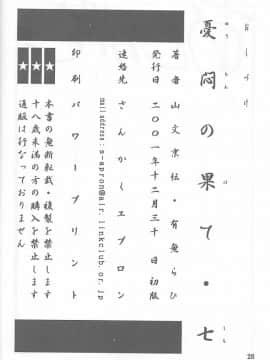 おしづけ
憂悶の果て・七
ゆうもん
は
しち
著者 山文京伝・有無らひ
発行日 二〇〇一年十二月三十日初版
連絡先 さんかくエプロン
mail address : s-apron@air.linkclub.or.jp
印刷 パワープリント
★本書の無断転載・複製を禁止します
★十八歳未満の方の購入を禁止します
★通販は行なっておりません
28